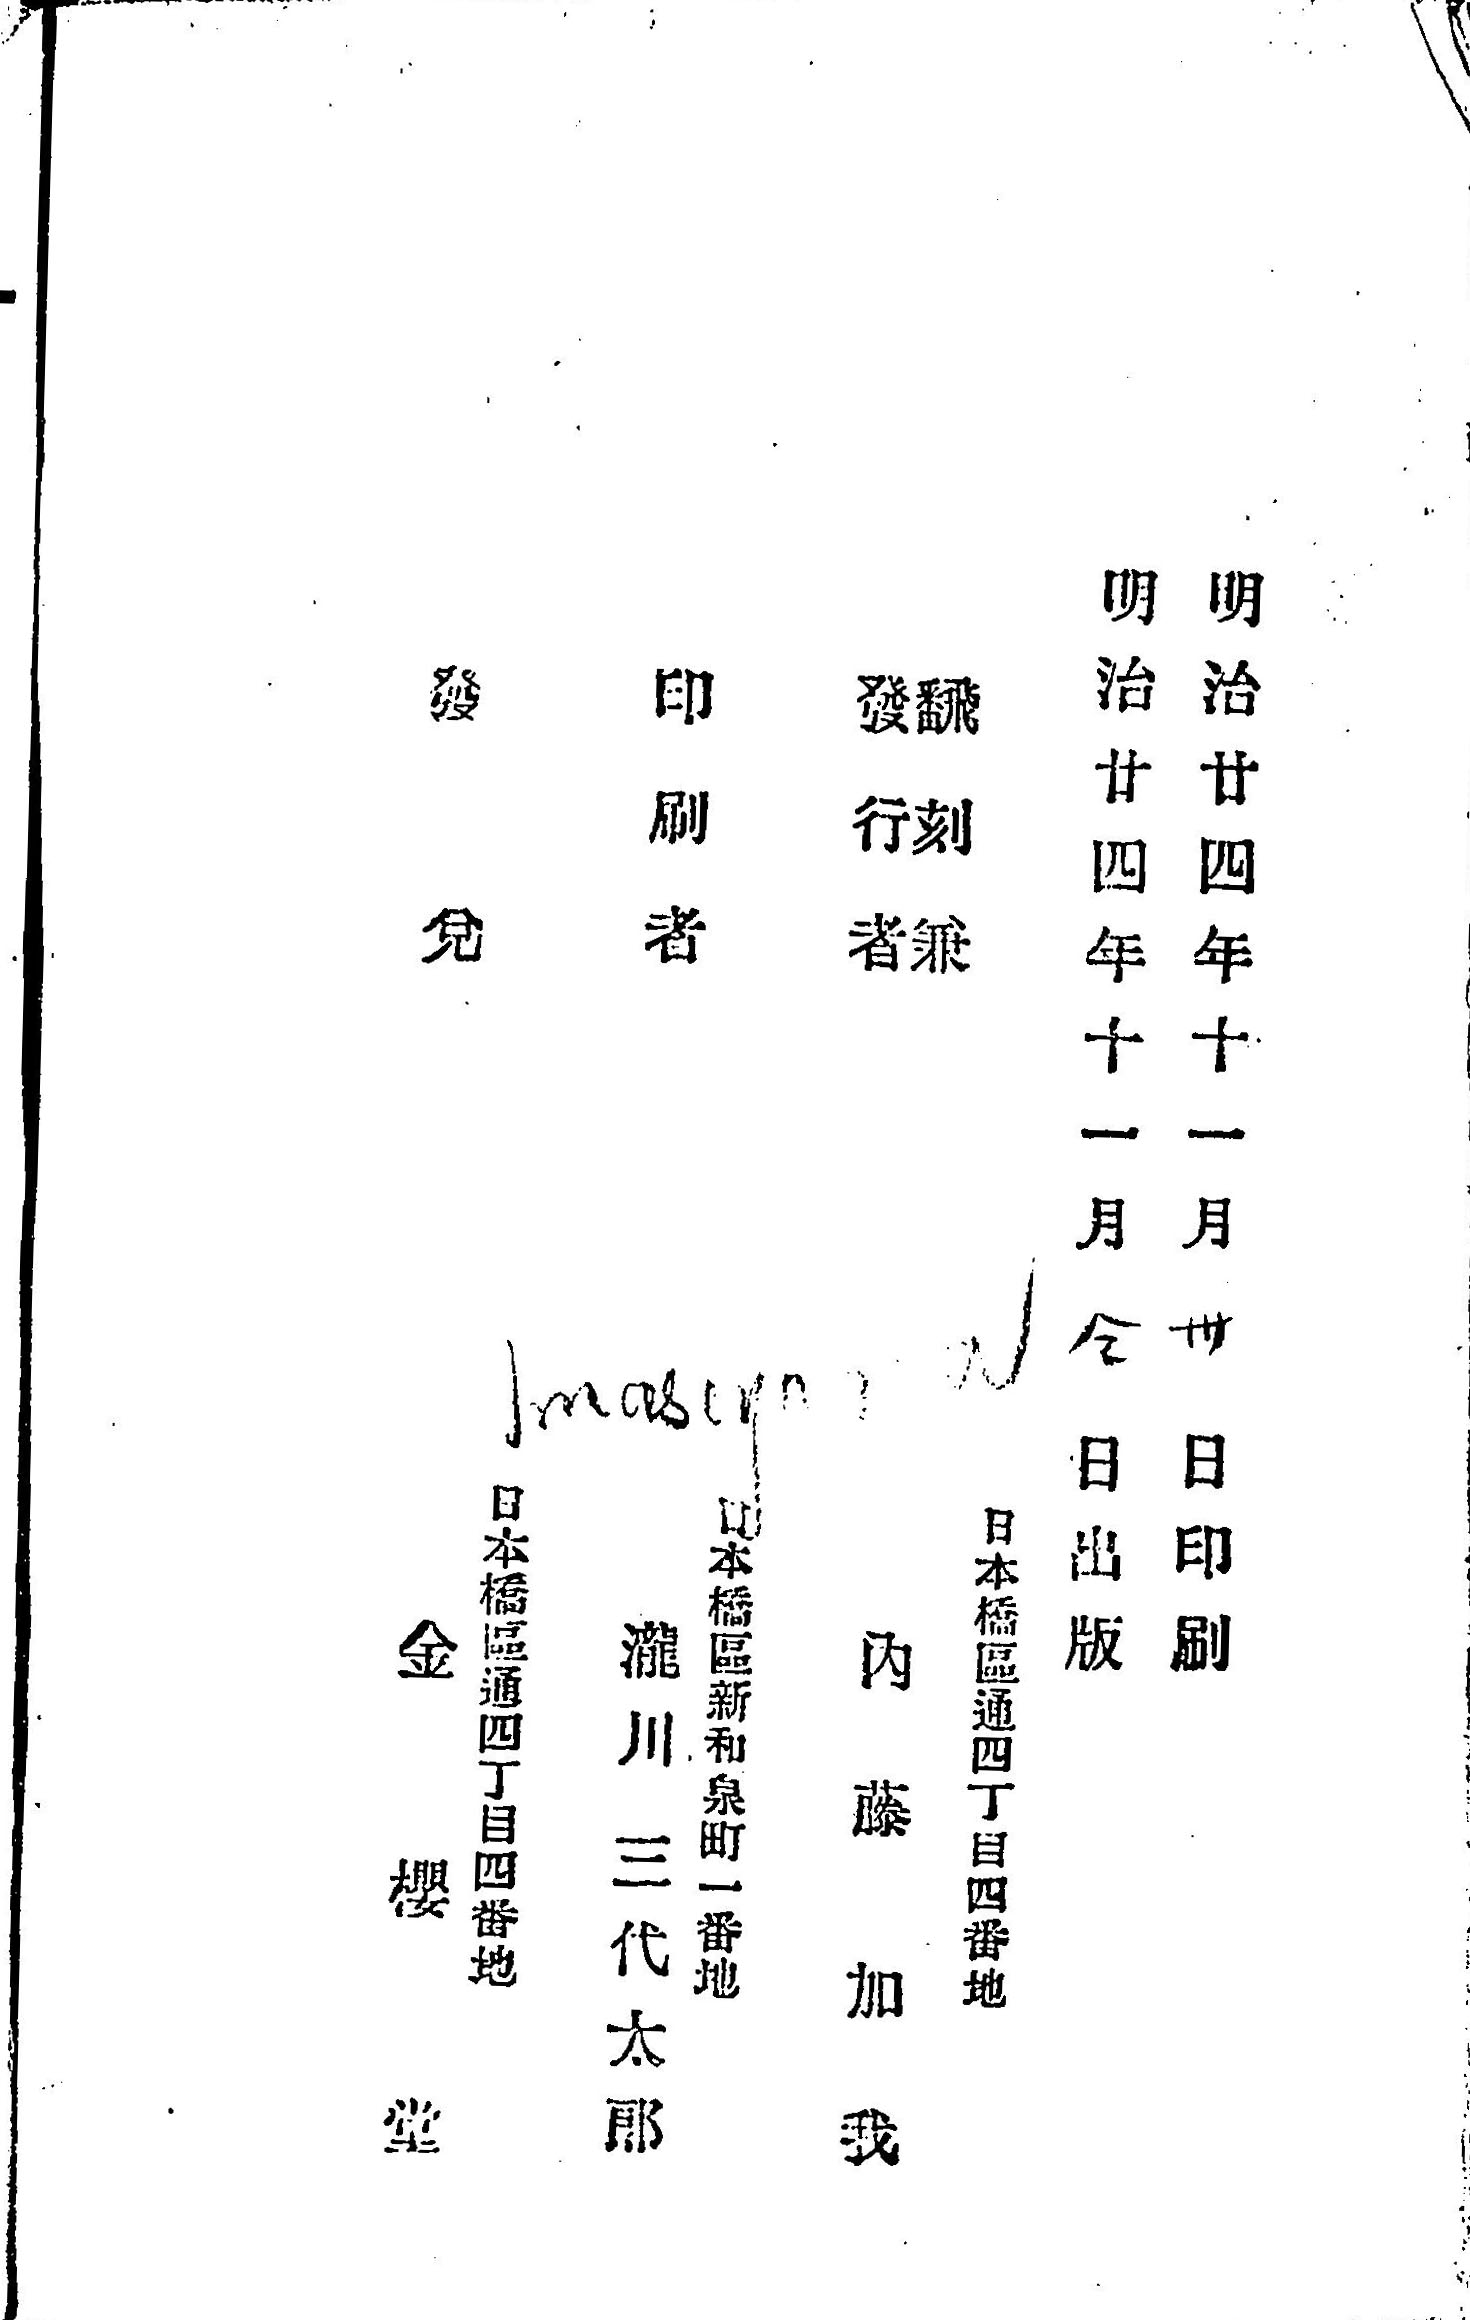 明治廿四年十一月卅日印刷
明治廿四年十一月仝日出版
日本橋區通四丁目四番地
飜刻兼
發行者
內藤加我
日本橋區新和泉町一番地
印刷者
瀧川三代太郎
日本橋區通四丁目四番地
發兌
金櫻堂